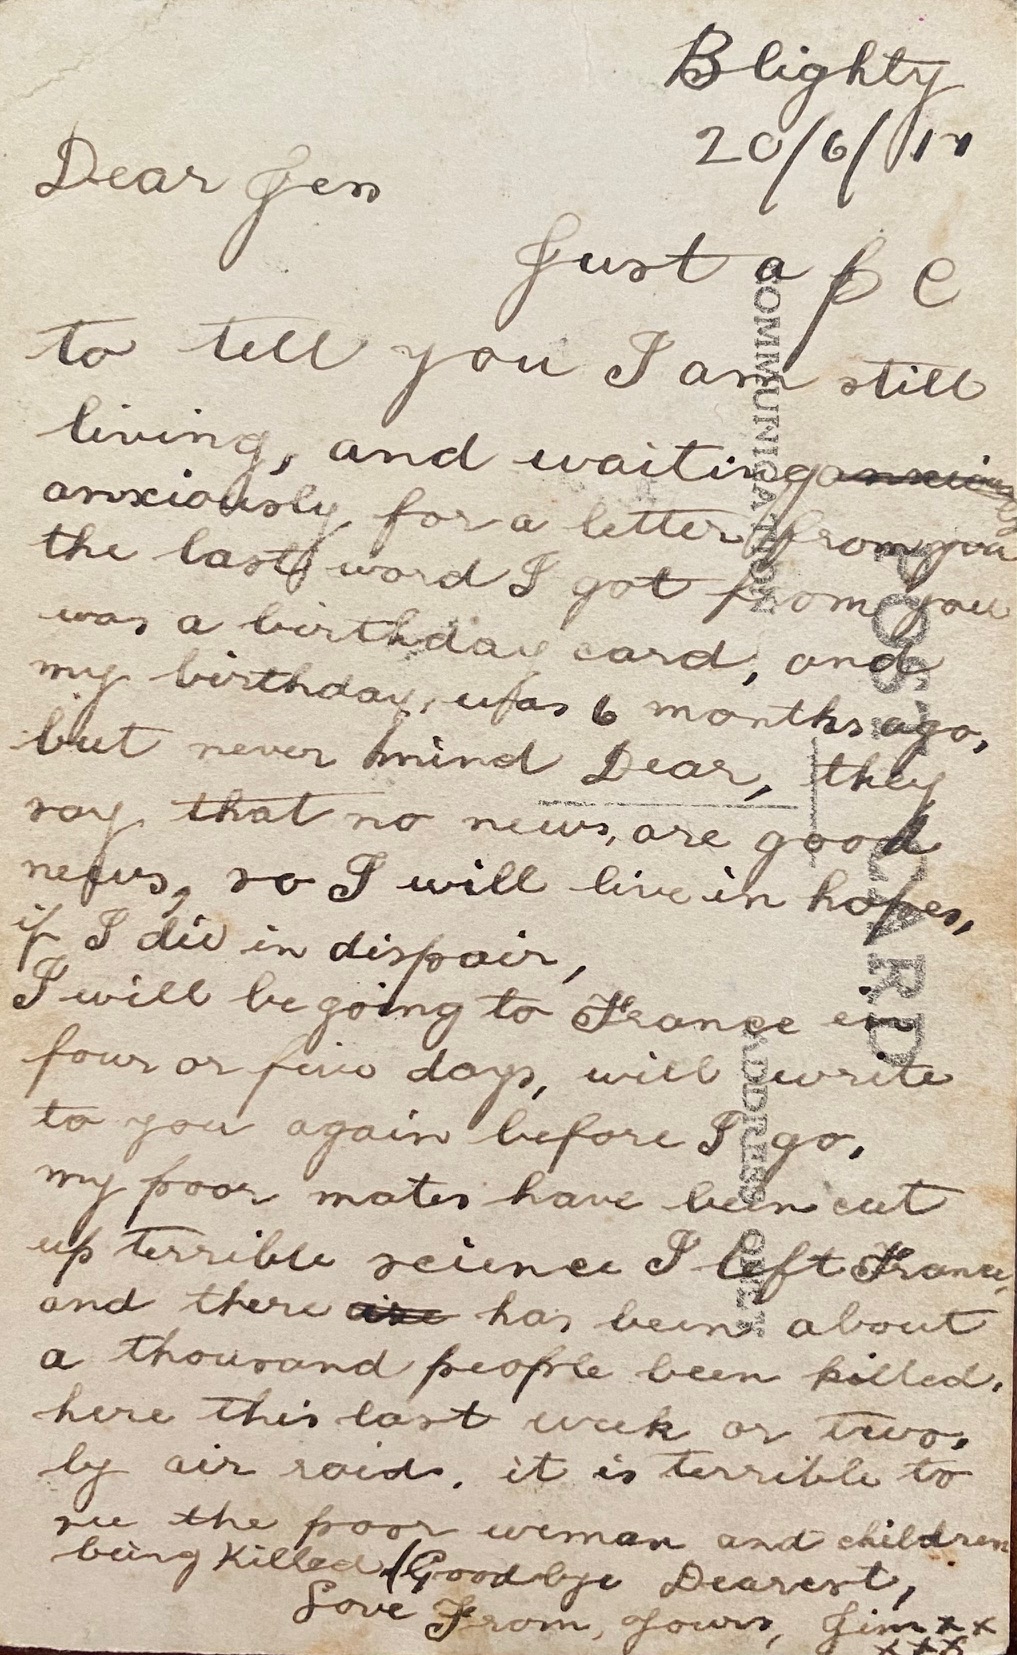 Blighty
20/6/17
Dear Jen
Just a p c
to tell you I am still
living, and waiting anxiously
anxiously for a letter from you
the last word I got from you
was a birthday card, and
my birthday, was 6 months ago,
but never mind Dear, they
say that no news, are good
news, so I will live in hopes,
if I die in dispair,
I will be going to France in
four or five days, will write
to you again before I go,
my poor mates have been cut
up terrible science I left France,
and there are has been about
a thousand people been killed,
here this last week or two,
by air raids, it is terrible to
see the poor weman and children
being Killed (Goodbye Dearest,
Love From, Yours, Jim x x
x x x
COMMUNICATION
POST CARD
ADDRESS ONLY